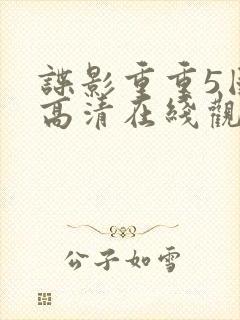 諜影重重5國
高清在綫觀
公子如雪